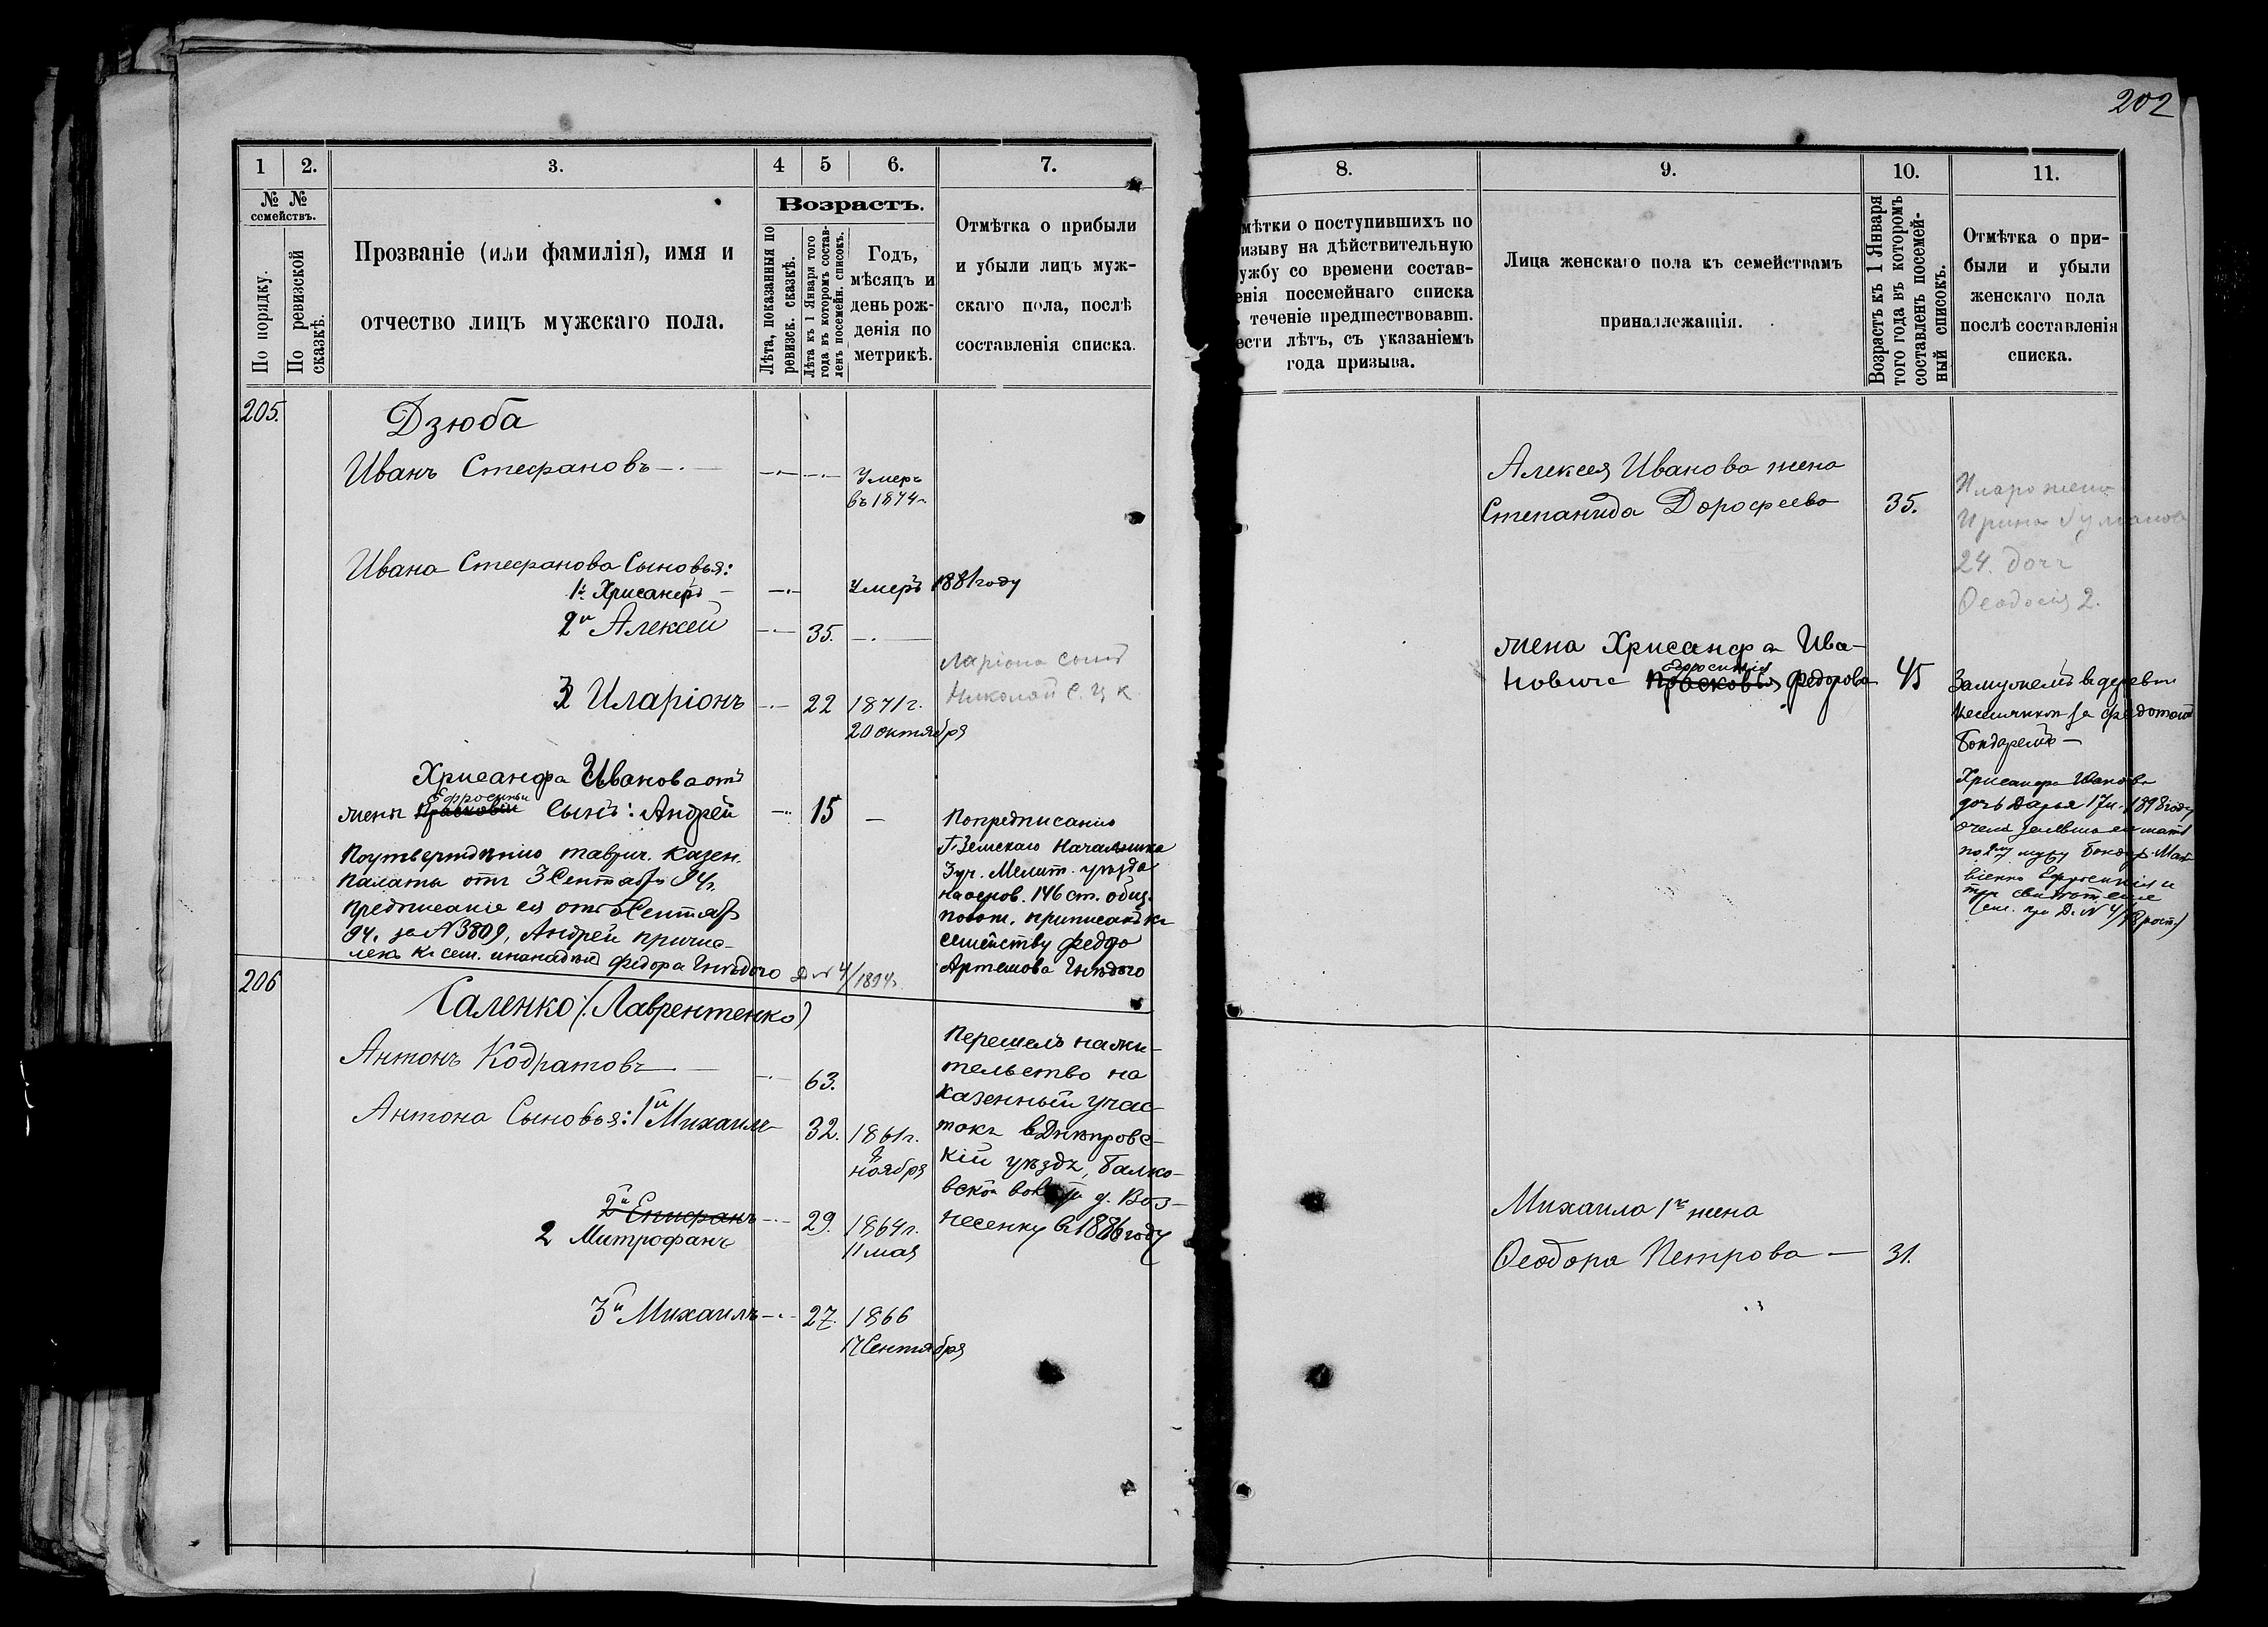 202
1
2.
3.
4
5
6.
7.
№ №
семействъ.
По порядку.
По ревизской
сказкѣ.
Прозваніе (или фамилія), имя и
отчество лицъ мужскаго пола.
Возрастъ.
Лѣта, показанныя по
ревизск. сказкѣ.
Лѣта къ 1 Января того
года въ которомъ состав-
ленъ посемейн. списокъ.
Годъ,
мѣсяцъ и
день рож-
денія по
метрикѣ.
Отмѣтка о прибыли
и убыли лицъ муж-
скаго пола, послѣ
составленія списка.
205.
Дзюба
Иванъ Стефановъ —.—
Умеръ
въ 1874г.
Ивана Стефанова Сыновья:
1й Хрисанфъ —
Умеръ 1881 году
2й Алексѣй
35.
3 Иларіонъ
22
1871г.
20 октября
Ларіона сынъ
Николай
Хрисанфа Иванова отъ
жены Прасковіи Сынъ: Андрей
Ефросиньи
15
—
По утвержденію таврич. Казен.
Палаты отъ 3 Сентября 94г.
предписаніе ея отъ Сентяб
94. за № 3809, Андрей причис-
ленъ къ сем. Федора Гнѣдого
Д № 4/1894г.
По предписанію
Г. Земскаго Начальника
3 уч. Мелит. уѣзда
на основ. 146 ст. общ.
полож. приписанъ къ
семейству Федора
Артемова Гнѣдого
206
Галенко (: Лаврентенко)
Антонъ Кодратовъ
63.
Антона Сыновья: 1й Михаилъ
32.
1861г.
8
ноября
2й Епифанъ
2 Митрофанъ
29.
1864г.
11 мая
3й Михаилъ
27.
1866
17 Сентября
Перешелъ на жи-
тельство на
казенный учас-
токъ в Днѣпровс-
кій уѣздъ, Балко-
вской вол. д. Воз-
несенку в 1886 году
8.
9.
10.
11.
мѣтки о поступившихъ по
изыву на дѣйствительную
ужбу со времени состав-
енія посемейнаго списка
теченіе предшествовавш.
ести лѣтъ, съ указаніемъ
года призыва.
Лица женскаго пола къ семействамъ
принадлежащія.
Возрастъ къ 1 Января
того года въ которомъ
составленъ посемей-
ный списокъ.
Отмѣтка о при-
были и убыли
женскаго пола
послѣ составленія
списка.
Алексея Иванова жена
Степанида Дорофеева
35.
жена
Ирина
24. дочь
Ѳеодосія 2.
жена Хрисанфа Ива-
новича Прасковья Федорова
Ефросинія
45
Замужемъ в деревни
за Федотомъ
Бондаремъ —
Хрисанфа Иванова
дочь Дарья 17 л. 1898 году
по 2му мужу Бондар. Мат-
Ефросинія
Михаила 1й жена
Ѳеодора Петрова —
31.